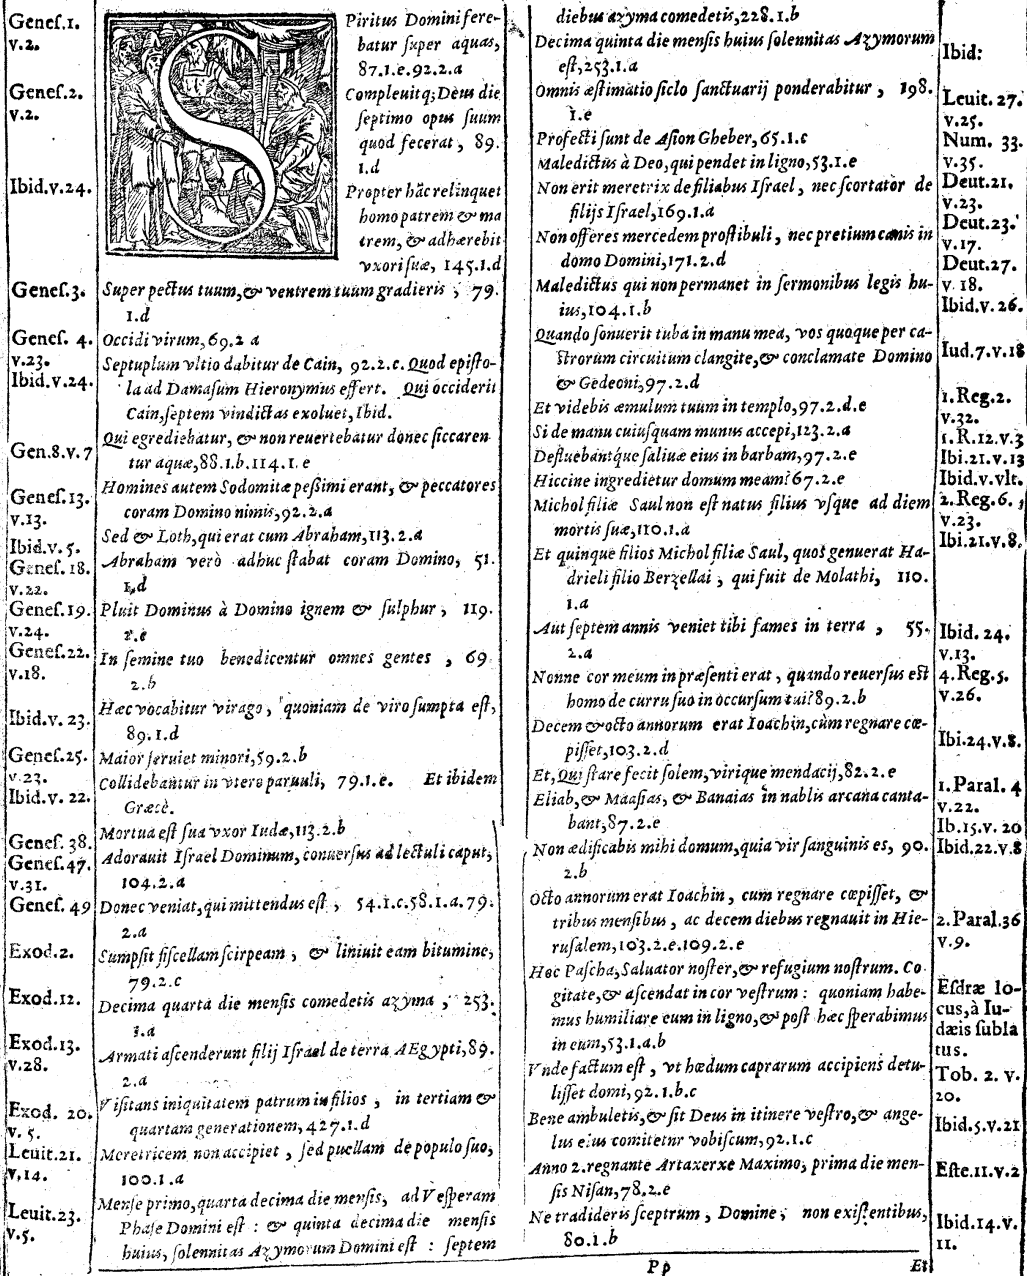 Genes.1.
v.2.
Genes.2.
v.2.
Ibid.v.24.
Genes.3.
Genes. 4.
v.23.
Ibid.v.24.
Gen.8.v.7
Genes.13.
v.13.
Ibid.v.5.
Genes.18.
v.22.
Genes.19.
v.24.
Genes.22.
v.18.
Ibid.v.23.
Genes.25.
v.23.
Ibid.v.22.
Genes.38.
Genes.47.
v.31.
Genes.49
Exod.2.
Exod.12.
Exod.13.
v.28.
Exod. 20.
v.5.
Leuit.21.
v.14.
Leuit.23.
v.5.
SPiritus Domini fere-
batur super aquas,
87.1.e.92.2.a
Compleuitq; Deus die
septimo opus suum
quod fecerat, 89.
1.d
Propter hãc relinquet
homo patrem & ma
trem, & adhærebit
vxori suæ, 145.1.d
Super pectus tuum, & ventrem tuum gradieris, 79.
1.d
Occidi virum, 69.2 a
Septuplum vltio dabitur de Cain, 92.2.c. Quod episto-
la ad Damasum Hieronymus effert. Qui occiderit
Cain, septem vindictas exoluet, Ibid.
Qui egrediebatur, & non reuertebatur donec siccaren
tur aquæ, 88.1.b.114.1.e
Homines autem Sodomitæ pessimi erant, & peccatores
coram Domino nimis, 92.2.a
Sed & Loth, qui erat cum Abraham, 113.2.a
Abraham verò adhuc stabat coram Domino, 51.
1.d
Pluit Dominus à Domino ignem & sulphur, 119.
2.e
In semine tuo benedicentur omnes gentes, 69.
2.b
Hæc vocabitur virago, quoniam de viro sumpta est,
89.1.d
Maior seruiet minori, 59.2.b
Collidebantur in vtero paruuli, 79.1.e. Et ibidem
Græcè.
Mortua est sua vxor Iudæ, 113.2.b
Adorauit Israel Dominum, conuersus ad lectuli caput,
104.2.a
Donec veniat, qui mittendus est, 54.1.c.58.1.a.79.
2.a
Sumpsit fiscellam scirpeam, & liniuit eam bitumine,
79.2.c
Decima quarta die mensis comedetis azyma, 253.
1.a
Armati ascenderunt filij Israel de terra AEgypti, 89.
2.a
Visitans iniquitatem patrum in filios, in tertiam &
quartam generationem, 427.1.d
Meretricem non accipiet, sed puellam de populo suo,
100.1.a
Mense primo, quarta decima die mensis, ad Vesperam
Phase Domini est: & quinta decima die mensis
huius, solennitas Azymorum Domini est: septem
diebus azyma comedetis, 228.1.b
Decima quinta die mensis huius solennitas Azymorum
est, 253.1.a
Omnis æstimatio siclo sanctuarij ponderabitur, 198.
1.e
Profecti sunt de Asion Gheber, 65.1.c
Maledictus à Deo, qui pendet in ligno, 53.1.e
Non erit meretrix de filiabus Israel, nec scortator de
filijs Israel, 169.1.a
Non offeres mercedem prostibuli, nec pretium canis in
domo Domini, 171.2.d
Maledictus qui non permanet in sermonibus legis hu-
ius, 104.1.b
Quando sonuerit tuba in manu mea, vos quoque per ca-
strorum circuitum clangite, & conclamate Domino
& Gedeoni, 97.2.d
Et videbis æmulum tuum in templo, 97.2.d.e
Si de manu cuiusquam munus accepi, 123.2.a
Defluebantque saliuæ eius in barbam, 97.2.e
Hiccine ingredietur domum meam? 67.2.e
Michol filiæ Saul non est natus filius vsque ad diem
mortis suæ, 110.1.a
Et quinque filios Michol filiæ Saul, quos genuerat Ha-
drieli filio Berzellai, qui fuit de Molathi, 110.
1.a
Aut septem annis veniet tibi fames in terra, 55.
2.a
Nonne cor meum in præsenti erat, quando reuersus est
homo de curru suo in occursum tui? 89.2.b
Decem & octo annorum erat Ioachin, cùm regnare cœ-
pisset, 103.2.d
Et, Qui stare fecit solem, virique mendacij, 82.2.e
Eliab, & Maasias, & Banaias in nablis arcana canta-
bant, 87.2.e
Non ædificabis mihi domum, quia vir sanguinis es, 90.
2.b
Octo annorum erat Ioachin, cum regnare cœpisset, &
tribus mensibus, ac decem diebus regnauit in Hie-
rusalem, 103.2.e.109.2.e
Hoc Pascha, Saluator noster, & refugium nostrum. Co
gitate, & ascendat in cor vestrum: quoniam habe-
mus humiliare eum in ligno, & post hæc sperabimus
in eum, 53.1.a.b
Vnde factum est, vt hœdum caprarum accipiens detu-
lisset domi, 92.1.b.c
Bene ambuletis, & sit Deus in itinere vestro, & ange-
lus eius comitetur vobiscum, 92.1.c
Anno 2. regnante Artaxerxe Maximo, prima die men-
sis Nisan, 78.2.e
Ne tradideris sceptrum, Domine, non existentibus,
80.1.b
Pp
Et
Ibid:
Leuit. 27.
v.25.
Num. 33.
v.35.
Deut.21.
v.23.
Deut.23.
v.17.
Deut.27.
v. 18.
Ibid.v.26.
Iud.7.v.18
1.Reg.2.
v.32.
1.R.12.v.3
Ibi.21.v.13
Ibid.v.vlt.
2.Reg.6.
v.23.
Ibi.21.v.8.
Ibid. 24.
v.13.
4.Reg.5.
v.26.
Ibi.24.v.8.
1.Paral. 4
v.22.
Ib.15.v. 20
Ibid.22.v.8
2.Paral.36
v.9.
Esdræ lo-
cus, à Iu-
dæis subla
tus.
Tob. 2. v.
20.
Ibid.5.v.21
Este.11.v.2
Ibid.14.v.
11.